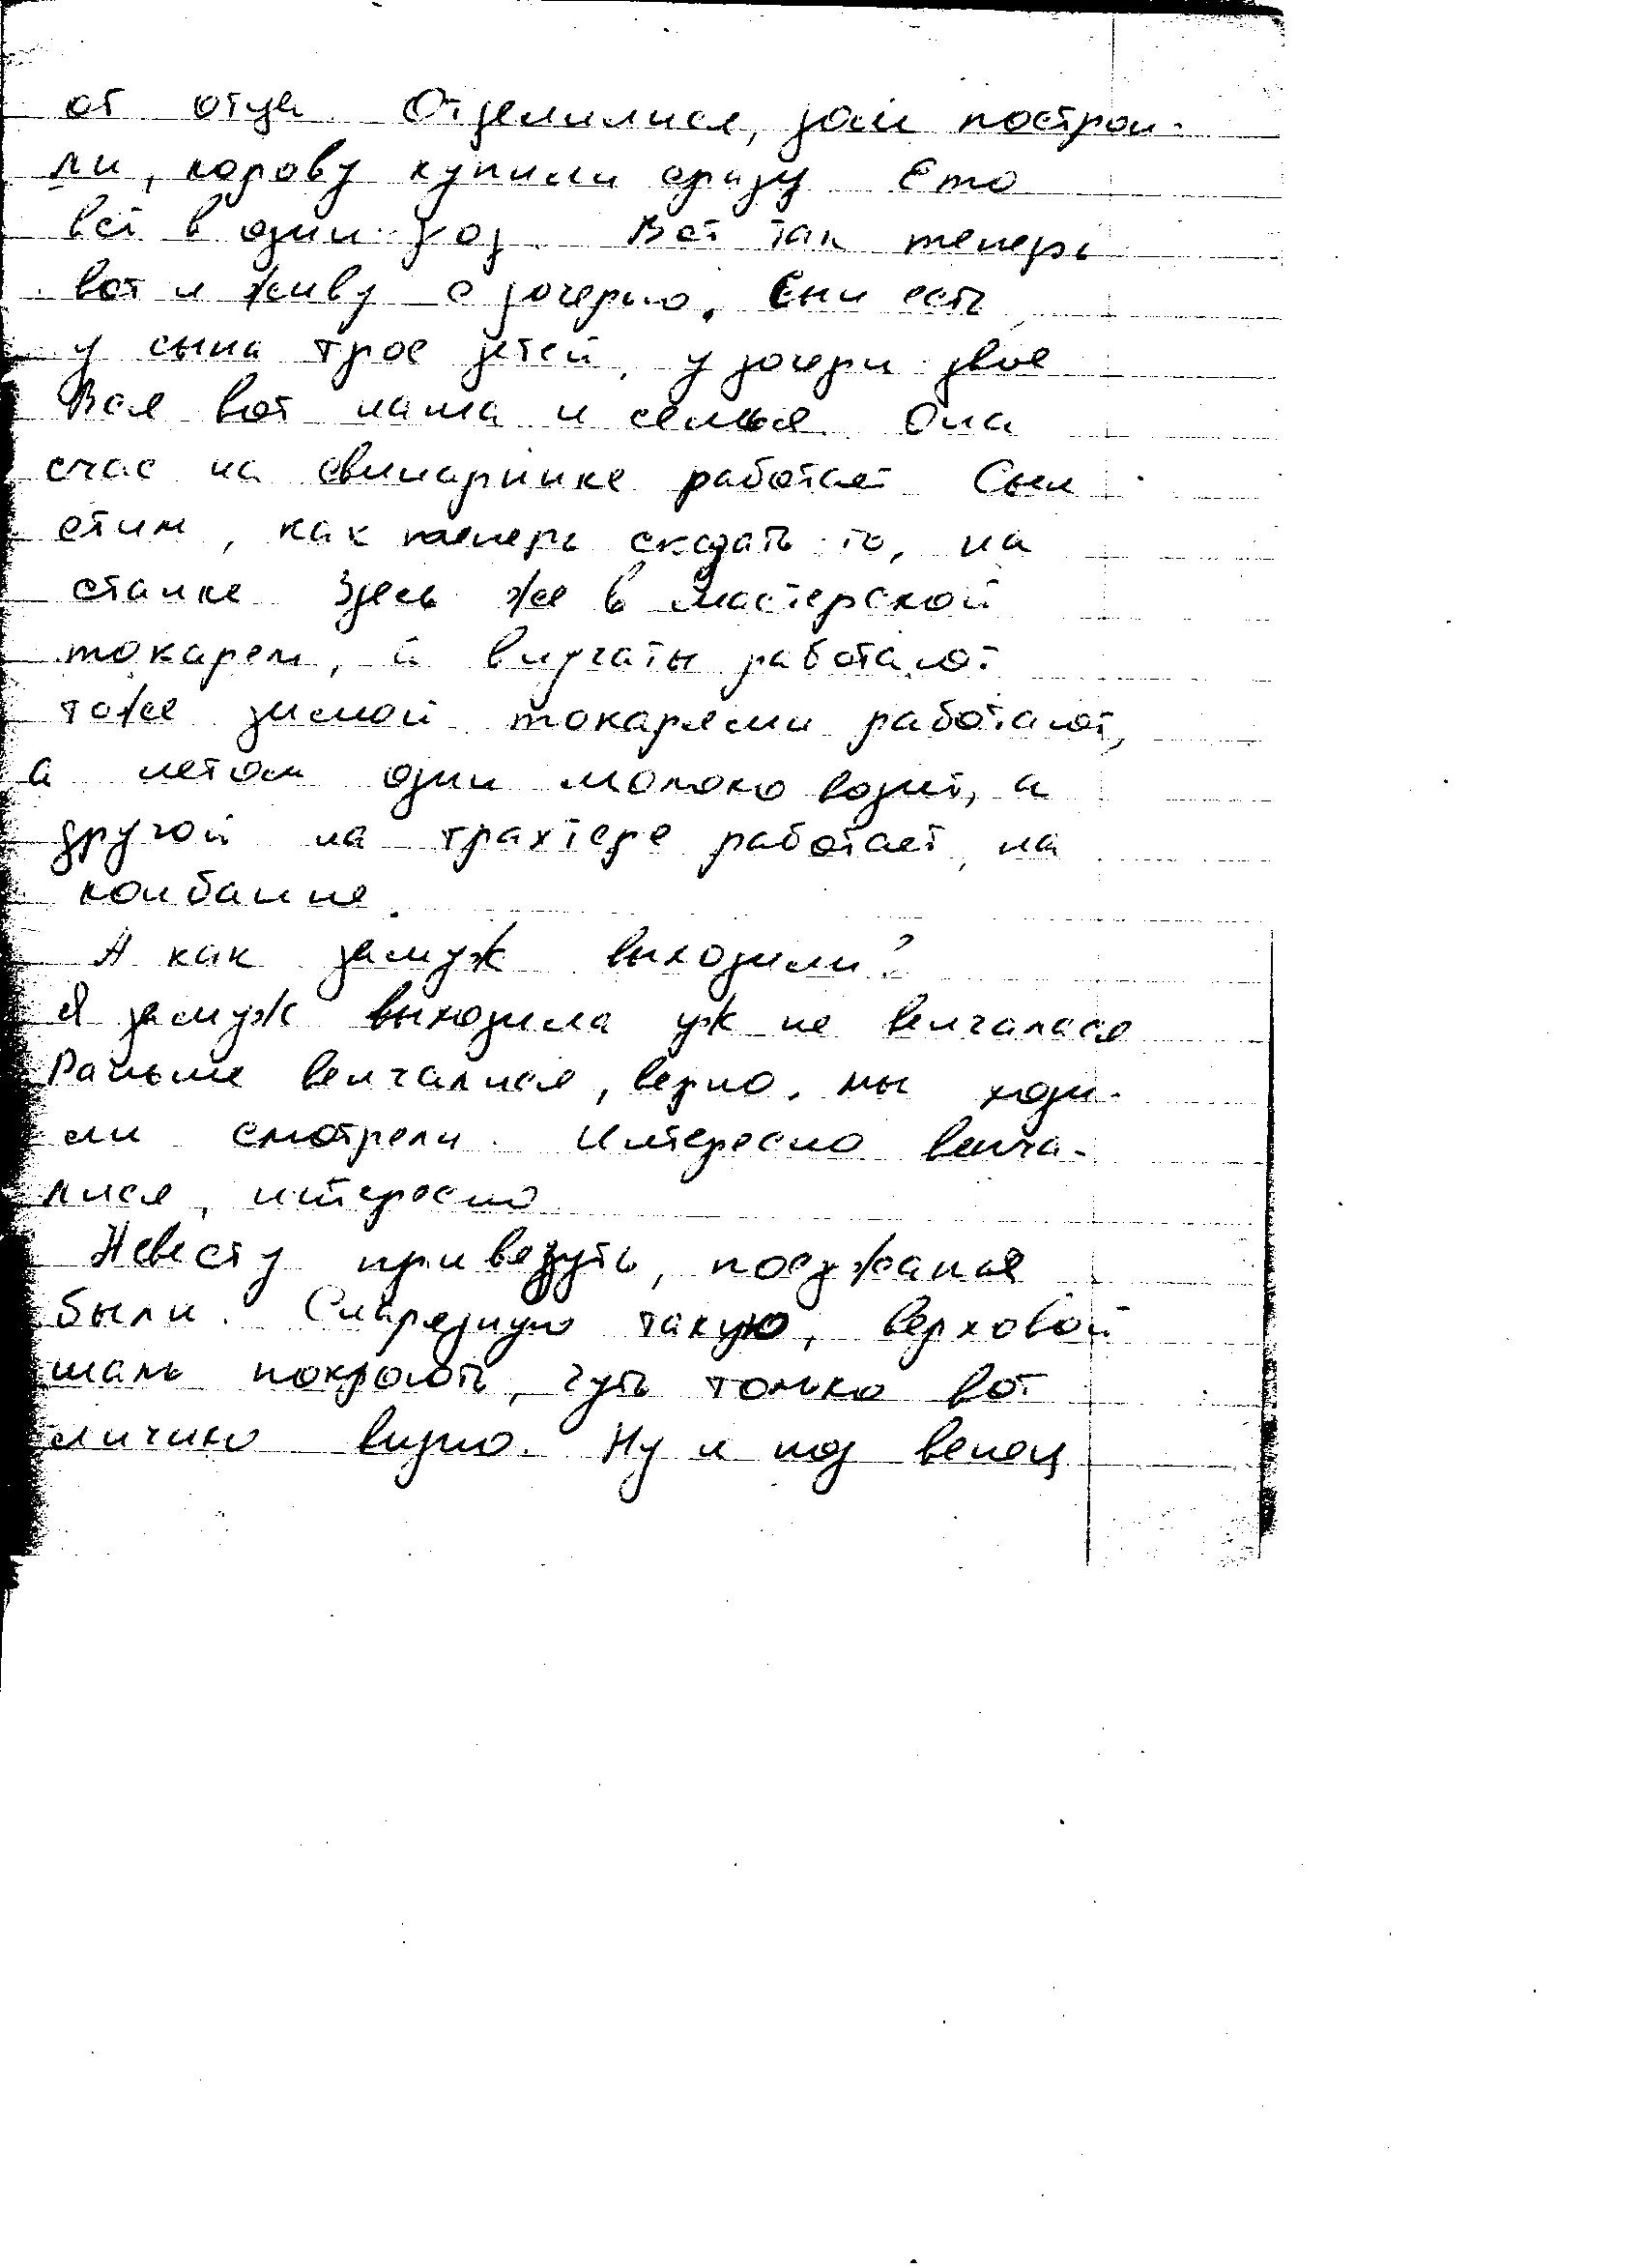 от отца Отделилися, дом построи-
ли, корову купили сразу Ето
всё в один год. Вот так теперь
вот и живу с дочерью. Сын есть
у сына трое детей, у дочери двое
Вся вот наша и семья Она
счас на свинарнике работает Сын
етим, как теперь сказать-то, на
станке Здесь же в мастерской
токарем, а внучаты работают
тоже зимой токарями работают,
а летом один молоко возит, а
другой на трахтере работает, на
конбайне.
А как замуж выходили?
Я замуж выходила уж не венчалася
Раньше венчалися, верно, мы ходи-
ли смотрели. Интересно венча-
лися, интересно
Невесту привезуть, поезжанья
были. Снарядную такую, верховой
шаль покроють, чуть только вот
личико видно. Ну и под венец